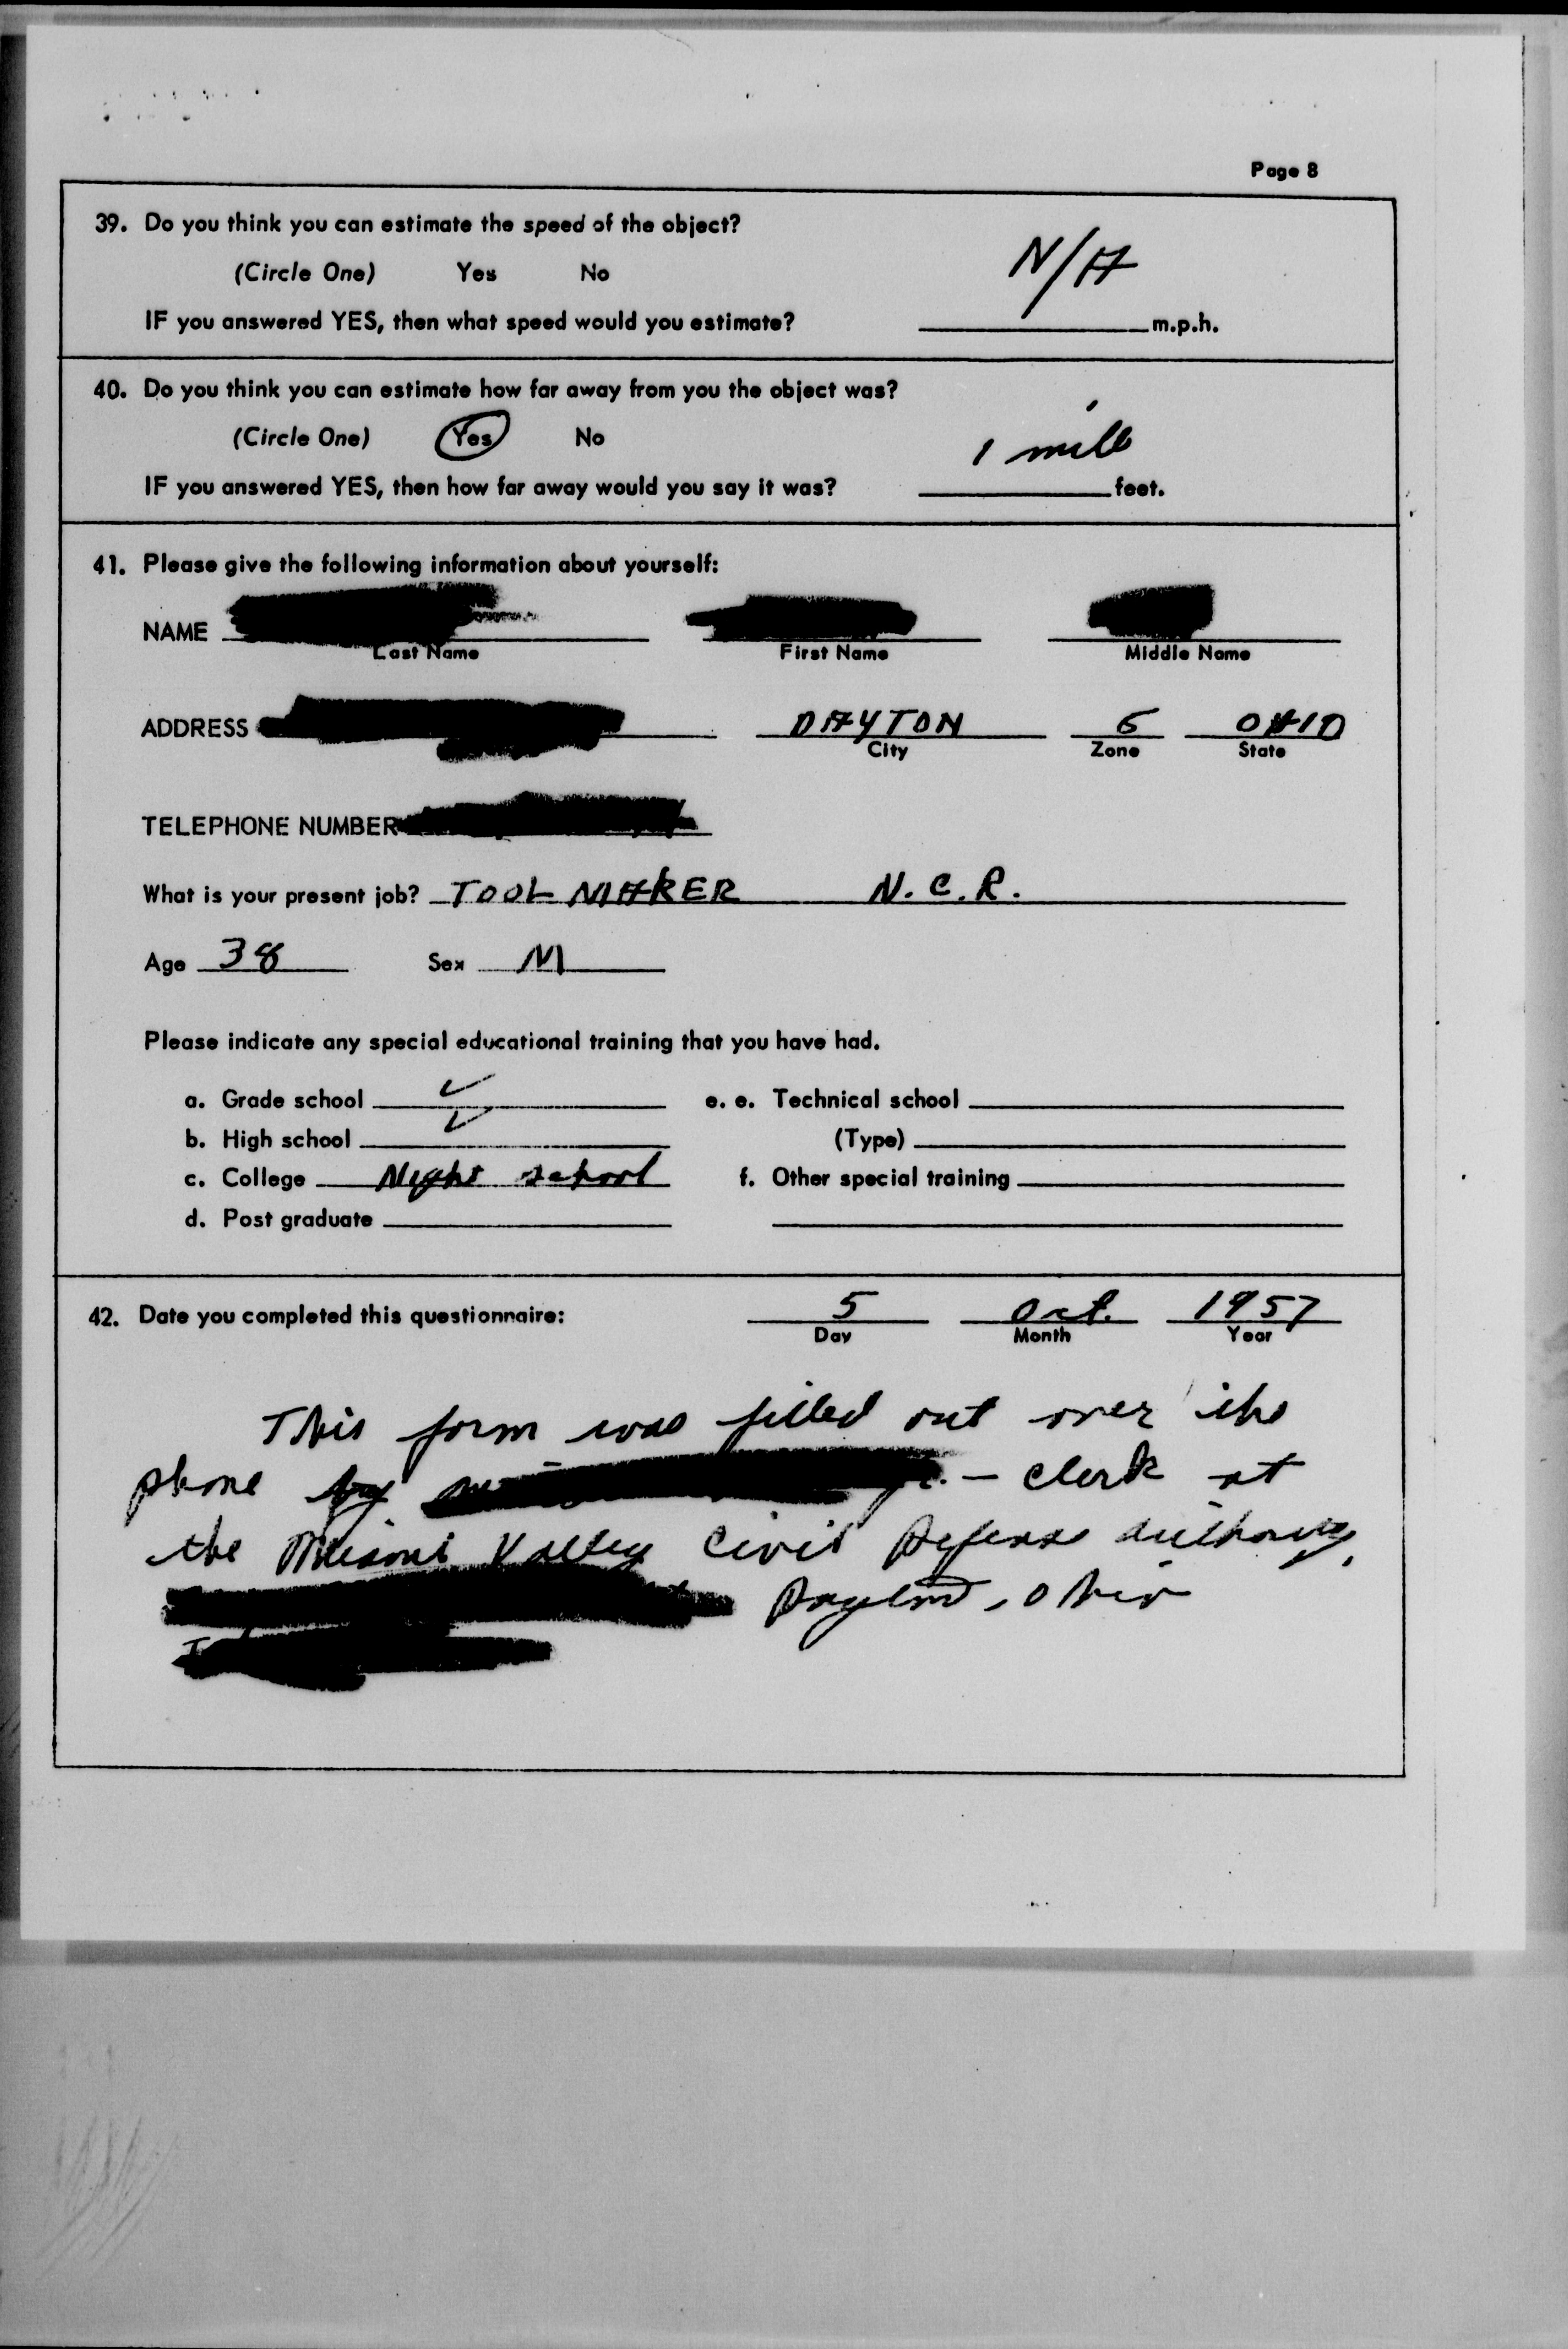 Page 8
39. Do you think you can estimate the speed of the object?
(Circle One) Yes No
N/A
IF you answered YES, then what speed would you estimate? m.p.h.
40. Do you think you can estimate how far away from you the object was?
(Circle One) Yes No
1 mile
IF you answered YES, then how far away would you say it was? feet.
41. Please give the following information about yourself:
NAME
Last Name First Name Middle Name
ADDRESS DAYTON OHIO
City Zone State
TELEPHONE NUMBER
What is your present job? TOOL MAKER N.C.R.
Age 38 Sex M
Please indicate any special educational training that you have had.
a. Grade school ✓ e. e. Technical school
b. High school ✓ (Type)
c. College Night school f. Other special training
d. Post graduate
42. Date you completed this questionnaire: 5 Oct. 1957
Day Month Year
This form was filled out over the
phone by — clerk at
the Miami Valley Civil Defense Authority,
Dayton, Ohio